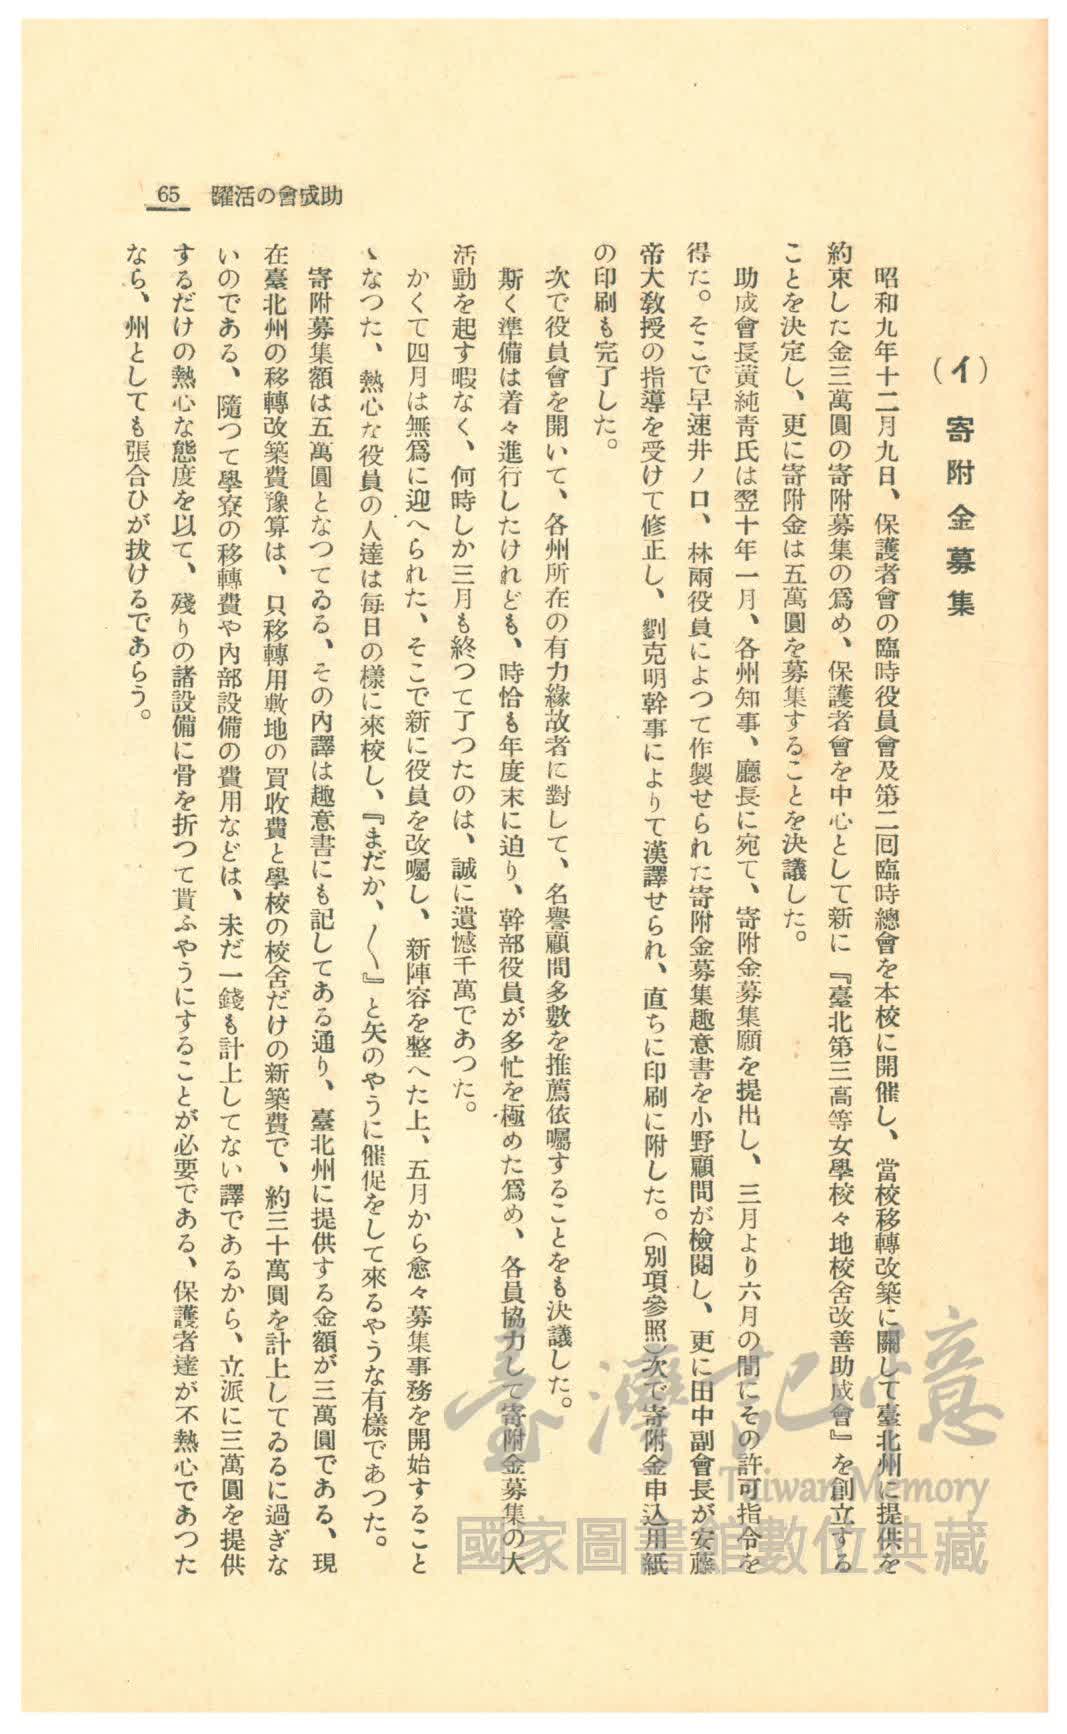 助成會の活躍 65
（イ） 寄附金募集
昭和九年十二月九日、保護者會の臨時役員會及第二囘臨時總會を本校に開催し、當校移轉改築に關して臺北州に提供を
約束した金三萬圓の寄附募集の爲め、保護者會を中心として新に『臺北第三高等女學校々地校舍改善助成會』を創立する
ことを決定し、更に寄附金は五萬圓を募集することを決議した。
助成會長黃純靑氏は翌十年一月、各州知事、廳長に宛て、寄附金募集願を提出し、三月より六月の間にその許可指令を
得た。そこで早速井ノ口、林兩役員によつて作製せられた寄附金募集趣意書を小野顧問が檢閱し、更に田中副會長が安藤
帝大敎授の指導を受けて修正し、劉克明幹事によりて漢譯せられ、直ちに印刷に附した。（別項參照）次で寄附金申込用紙
の印刷も完了した。
次で役員會を開いて、各州所在の有力緣故者に對して、名譽顧問多數を推薦依囑することをも決議した。
斯く準備は着々進行したけれども、時恰も年度末に迫り、幹部役員が多忙を極めた爲め、各員協力して寄附金募集の大
活動を起す暇なく、何時しか三月も終つて了つたのは、誠に遺憾千萬であつた。
かくて四月は無爲に迎へられた、そこで新に役員を改囑し、新陣容を整へた上、五月から愈々募集事務を開始すること
ゝなつた、熱心な役員の人達は每日の樣に來校し、『まだか、〱』と矢のやうに催促をして來るやうな有樣であつた。
寄附募集額は五萬圓となつてゐる、その內譯は趣意書にも記してある通り、臺北州に提供する金額が三萬圓である、現
在臺北州の移轉改築費豫算は、只移轉用敷地の買收費と學校の校舍だけの新築費で、約三十萬圓を計上してゐるに過ぎな
いのである、隨つて學寮の移轉費や內部設備の費用などは、未だ一錢も計上してない譯であるから、立派に三萬圓を提供
するだけの熱心な態度を以て、殘りの諸設備に骨を折つて貰ふやうにすることが必要である、保護者達が不熱心であつた
なら、州としても張合ひが拔けるであらう。
臺灣記憶
Taiwan Memory
國家圖書館數位典藏